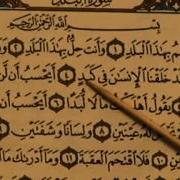 سورة البلد
بِسْمِ اللَّهِ الرَّحْمَٰنِ الرَّحِيمِ
بِهَٰذَا الْبَلَدِ ١ وَأَنتَ حِلٌّ بِهَٰذَا الْبَلَدِ ٢
خَلَقْنَا الْإِنسَٰنَ فِي كَبَدٍ ٤ أَيَحْسَبُ أَن لَّن
يَقُولُ مَالًا لُّبَدًا ٦ أَيَحْسَبُ أَن
عَيْنَيْنِ ٨ وَلِسَانًا وَشَفَتَيْنِ ٩
فَلَا اقْتَحَمَ الْعَقَبَةَ ١١ وَمَا أَدْرَىٰكَ مَا